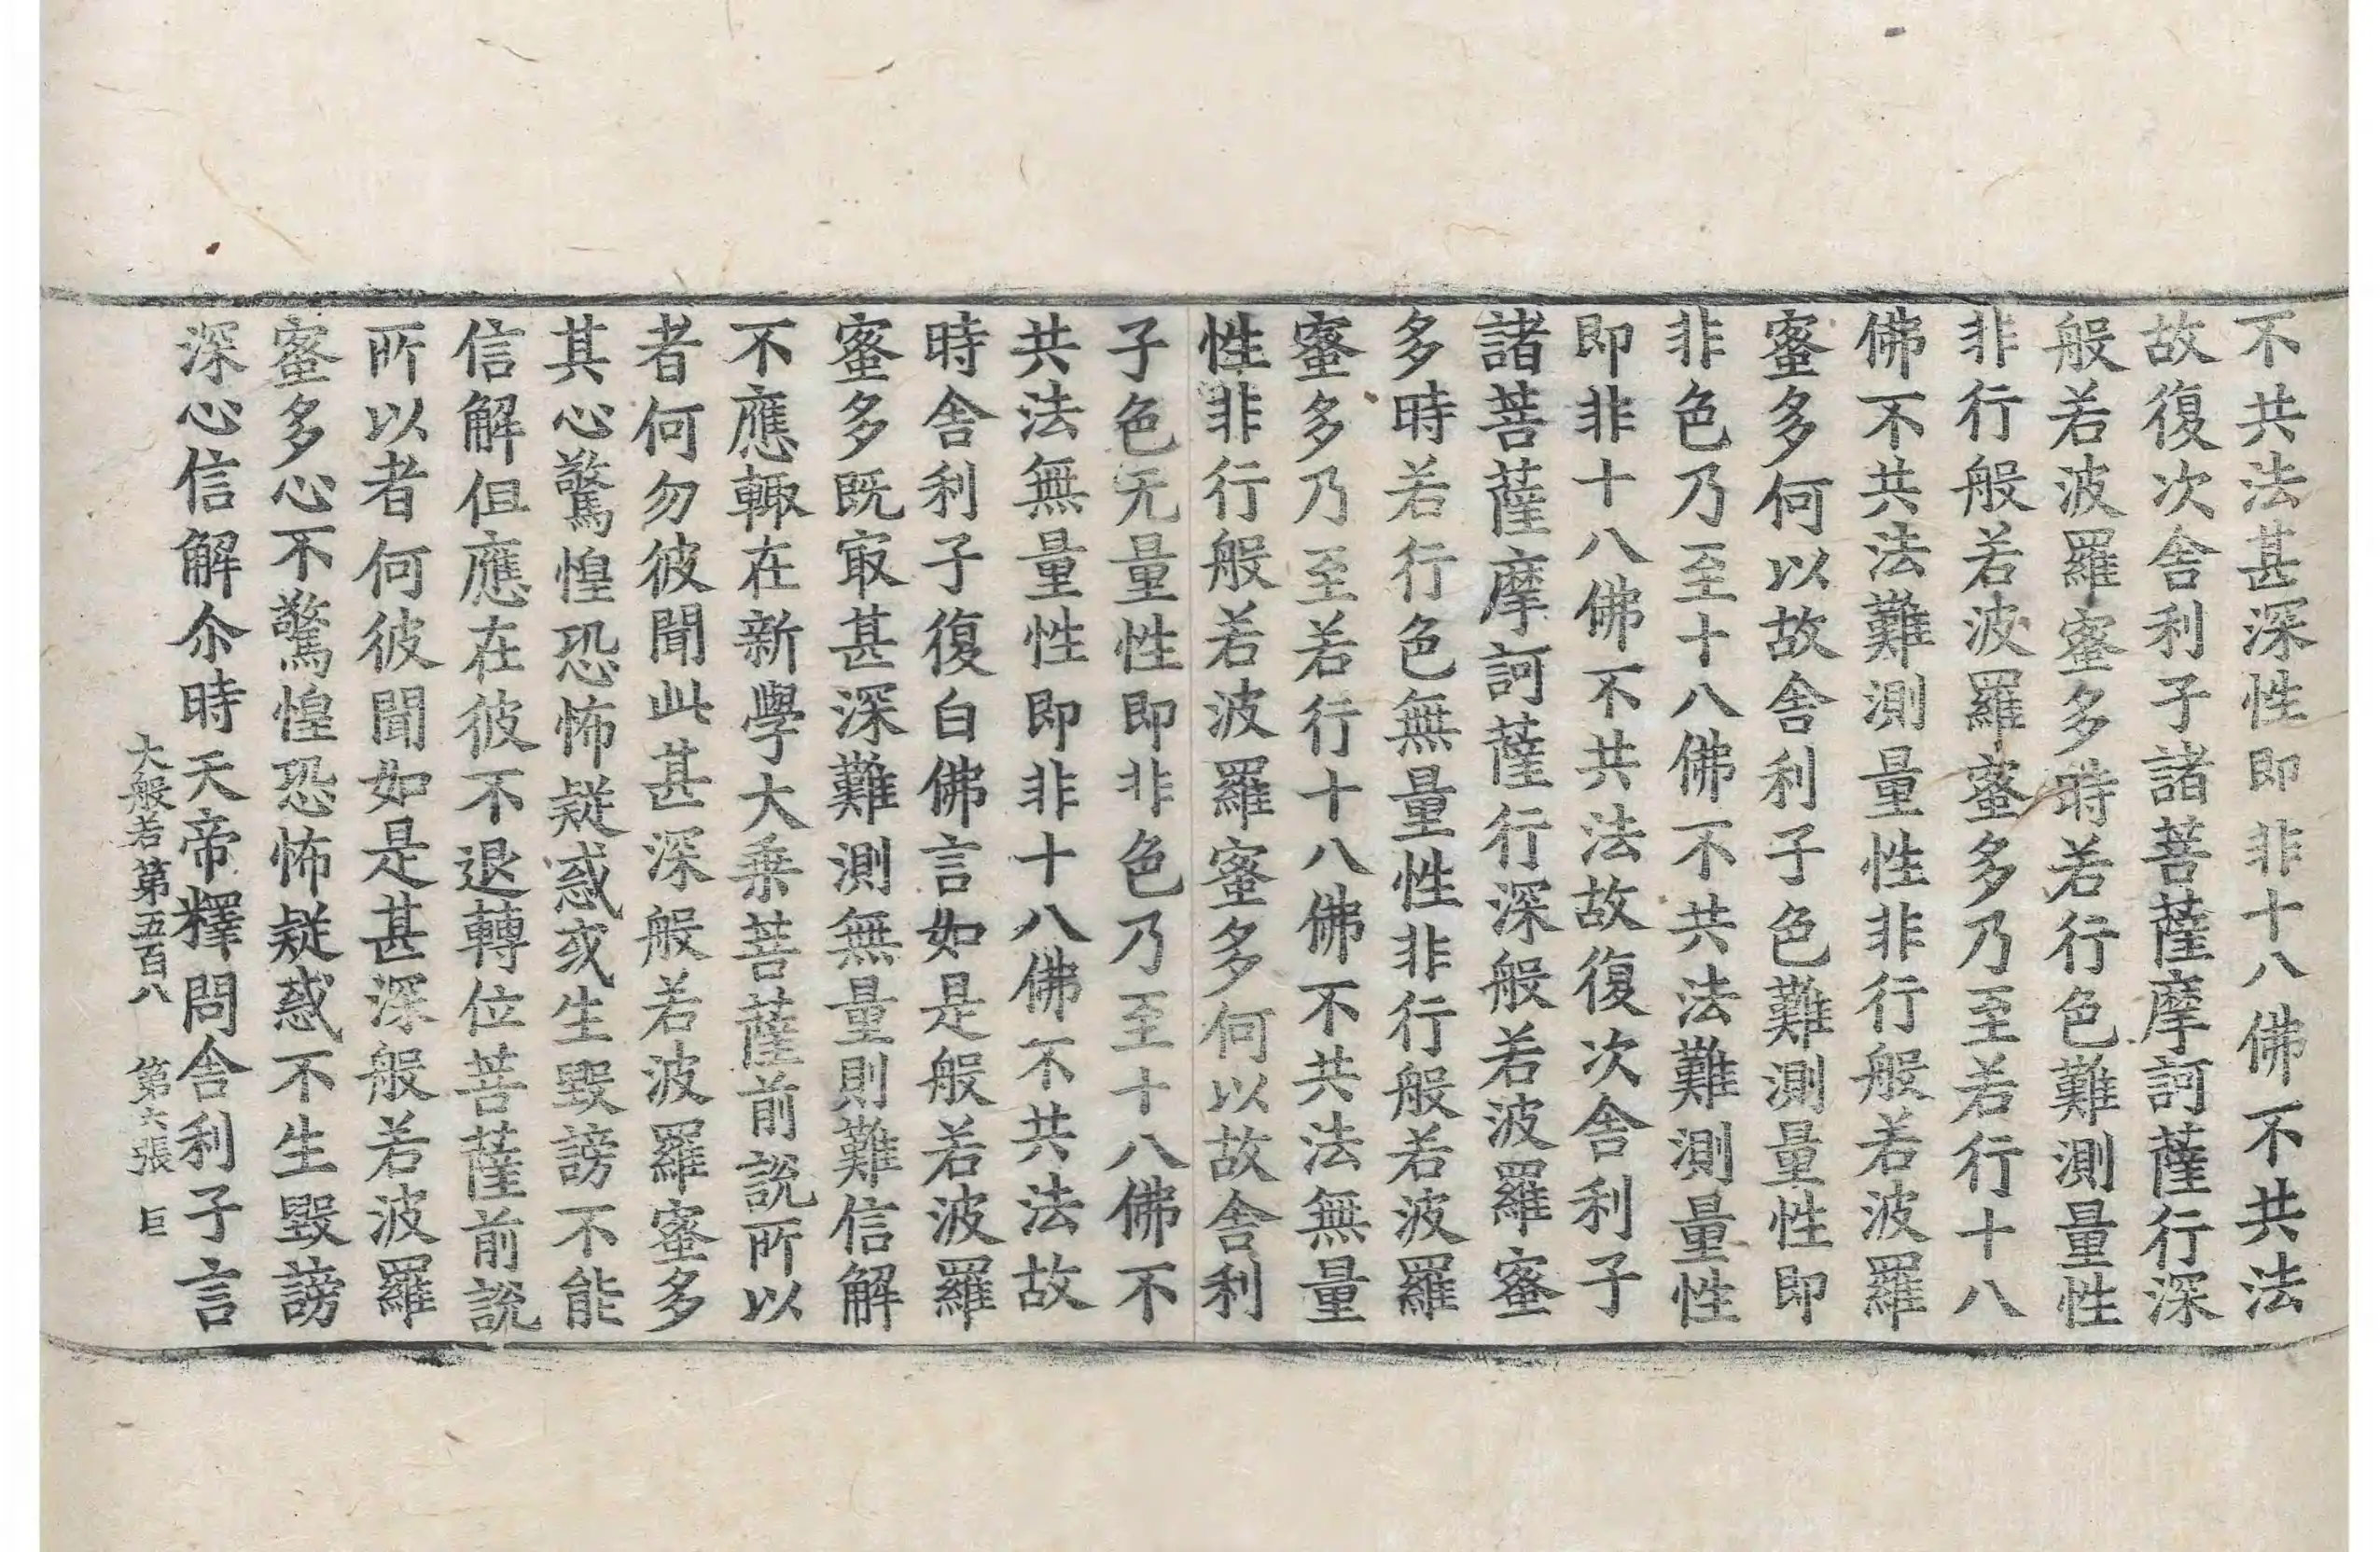 不共法甚深性即非十八佛不共法
故復次舍利子諸菩薩摩訶薩行深
般若波羅蜜多時若行色難測量性
非行般若波羅蜜多乃至若行十八
佛不共法難測量性非行般若波羅
蜜多何以故舍利子色難測量性即
非色乃至十八佛不共法難測量性
即非十八佛不共法故復次舍利子
諸菩薩摩訶薩行深般若波羅蜜
多時若行色無量性非行般若波羅
蜜多乃至若行十八佛不共法無量
性非行般若波羅蜜多何以故舍利
子色无量性即非色乃至十八佛不
共法無量性即非十八佛不共法故
時舍利子復白佛言如是般若波羅
蜜多既㝡甚深難測無量則難信解
不應輙在新學大乗菩薩前說所以
者何勿彼聞此甚深般若波羅蜜多
其心驚惶恐怖疑惑或生毀謗不能
信解但應在彼不退轉位菩薩前說
所以者何彼聞如是甚深般若波羅
蜜多心不驚惶恐怖疑惑不生毀謗
深心信解尒時天帝釋問舍利子言
大般若第五百八 第六張 巨